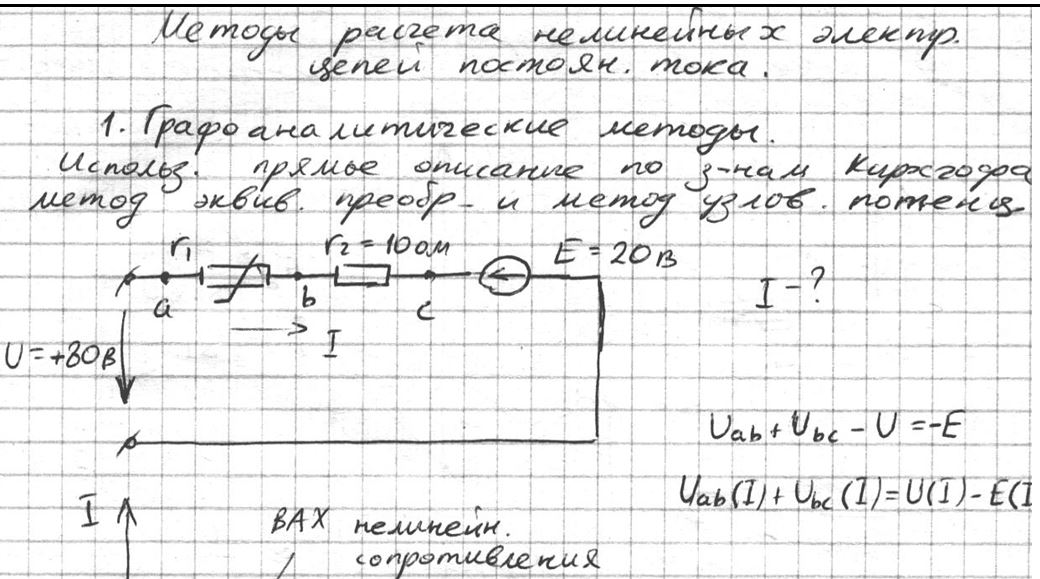 Методы расчета нелинейных электр.
цепей постоян. тока.
1. Графоаналитические методы.
Использ. прямые описание по з-нам Кирхгофа
метод эквив. преобр. и метод узлов. потенц
r1
r2 = 10 ом
E = 20 в
I - ?
a
b
c
I
U = +80 в
Uab + Ubc - U = -E
Uab(I) + Ubc(I) = U(I) - E(I
I
ВАХ нелинейн.
сопротивления